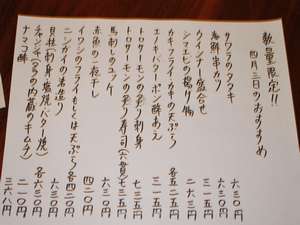 数量限定!!
四月三日のおすすめ
サワラのタタキ 六三〇円
海鮮串カツ 六三〇円
ウインナー盛合せ 三一五円
シマエビの掻り揚 二六三円
カキフライ カキの天ぷら 各五二五円
エーキバターポン酢あえ 三一五円
トロサーモンの炙り刺身
トロサーモンの炙り寿司(六貫) 七三五円
馬刺しのユッケ 六三〇円
赤魚の一夜干し 四二〇円
イワシのフライもしくは天ぷら 各四二〇円
ニシガイの煮造り 六三〇円
貝柱(刺身 塩焼 バター焼) 各六三〇円
チャンヂャ(タラの内蔵のキムチ) 二一〇円
ナマコ酢 三六八円